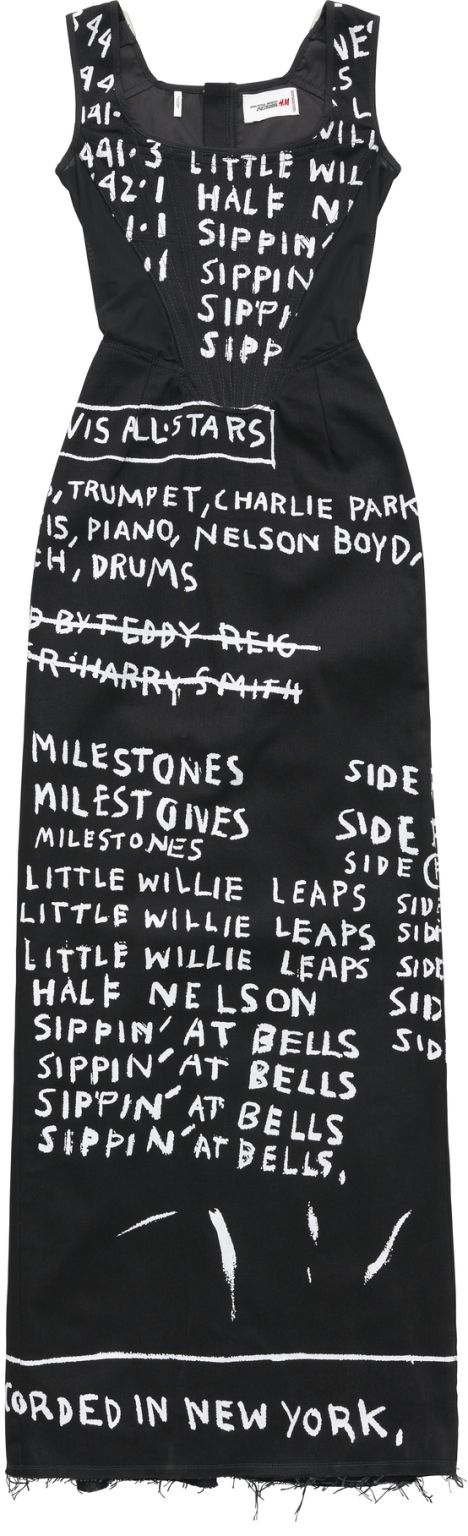 44 NE'
44. S
141. L
441.3 LITTLE WILL
42.1 HALF N
1.1 SIPPIN
.1 SIPPIN
SIPPI
SIPP
H&M
VIS ALL.STARS
, TRUMPET, CHARLIE PARK
IS, PIANO, NELSON BOYD,
CH, DRUMS
D BY TEDDY REIG
ER:HARRY SMITH
MILESTONES SIDE
MILESTONES SIDE
MILESTONES SIDE
LITTLE WILLIE LEAPS SID
LITTLE WILLIE LEAPS SIDE
LITTLE WILLIE LEAPS SIDE
HALF NELSON SID
SIPPIN' AT BELLS SID
SIPPIN' AT BELLS
SIPPIN' AT BELLS
SIPPIN' AT BELLS,
CORDED IN NEW YORK,